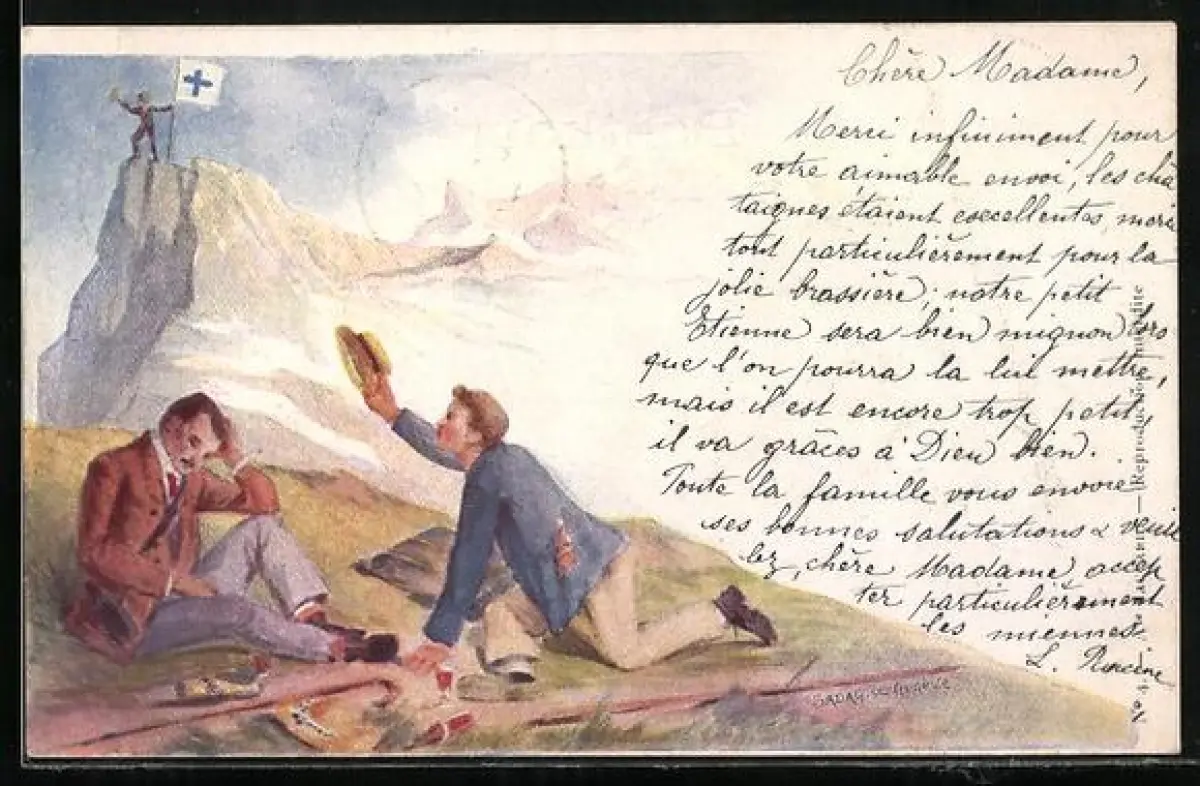 Chère Madame,
Merci infiniment pour
votre aimable envoi, les châ
taignes étaient excellentes, merci
tout particulièrement pour la
jolie brassière; notre petit
Etienne sera bien mignon lors
que l'on pourra la lui mettre,
mais il est encore trop petit,
il va grâces à Dieu bien.
Toute la famille vous envoie
ses bonnes salutations & veuil
lez, chère Madame, accep
ter particulièrement
les miennes.
L.
No
(Reproduction interdite